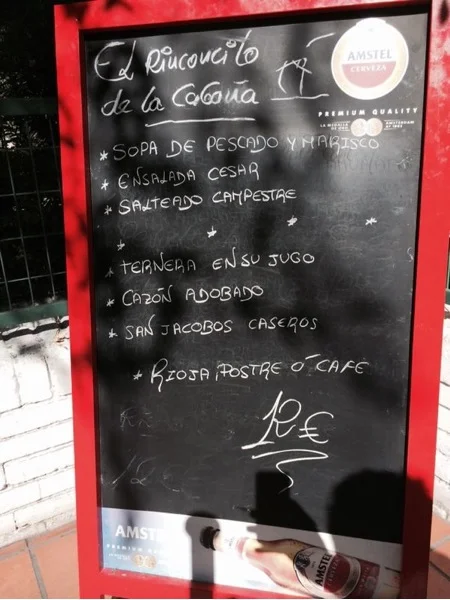 El Rinconcito
de la Cabaña
AMSTEL
CERVEZA
PREMIUM QUALITY
* SOPA DE PESCADO Y MARISCO
* ENSALADA CESAR
* SALTEADO CAMPESTRE
* * * *
* TERNERA EN SU JUGO
* CAZÓN ADOBADO
* SAN JACOBOS CASEROS
* RIOJA, POSTRE Ó CAFÉ
12 €
12 €
AMSTEL